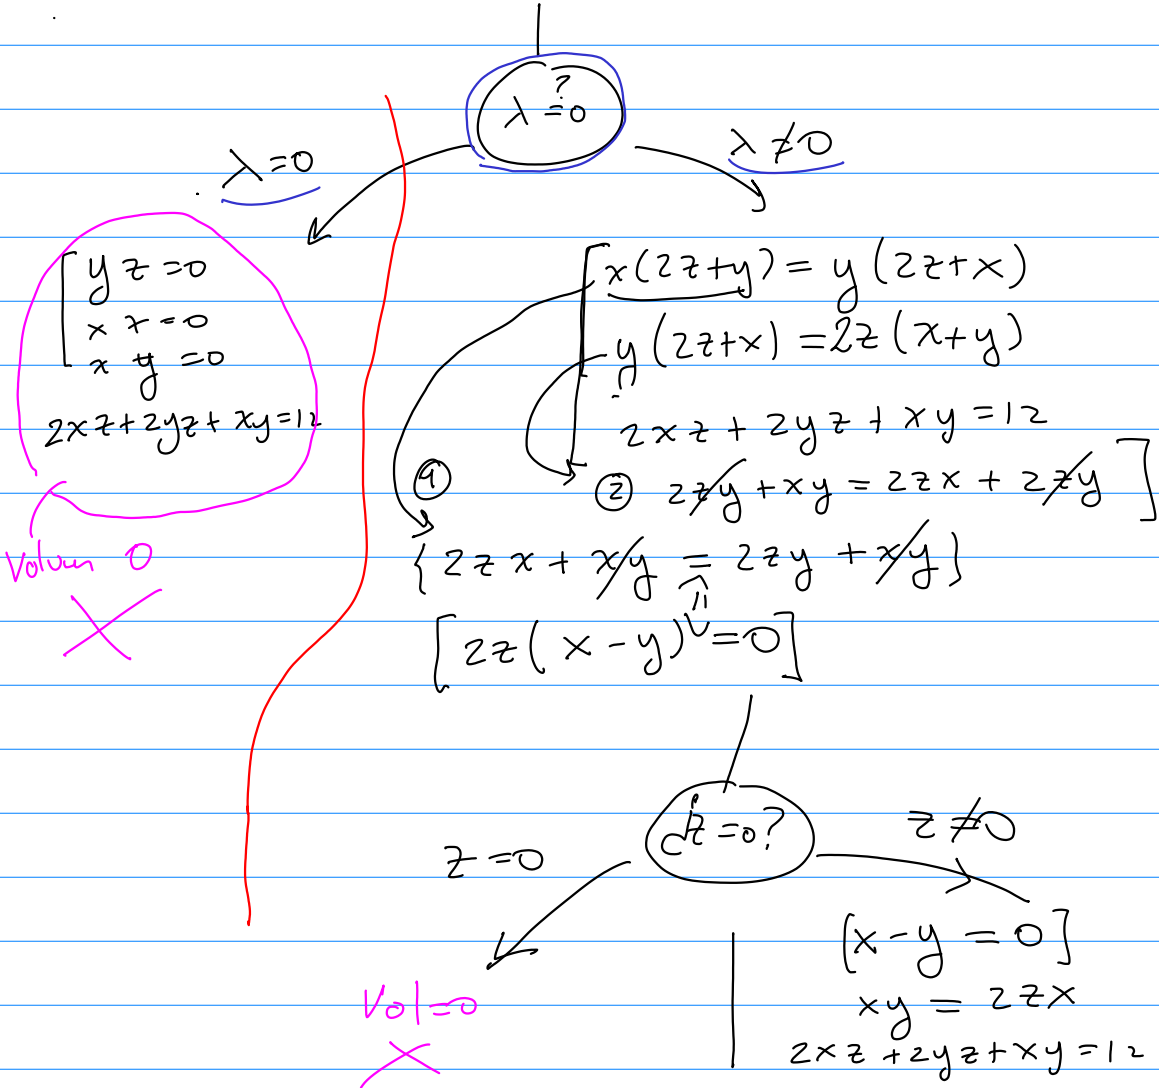 λ =? 0
λ = 0
λ ≠ 0
y z = 0
x z = 0
x y = 0
2xz + 2yz + xy = 12
Volum 0
x(2z+y) = y(2z+x)
y(2z+x) = 2z(x+y)
2xz + 2yz + xy = 12
② 2zy + xy = 2zx + 2zy ]
①
{2zx + xy = 2zy + xy}
[2z(x-y) = 0]
¿z = 0?
z = 0
z ≠ 0
Vol = 0
[x - y = 0]
xy = 2zx
2xz + 2yz + xy = 12